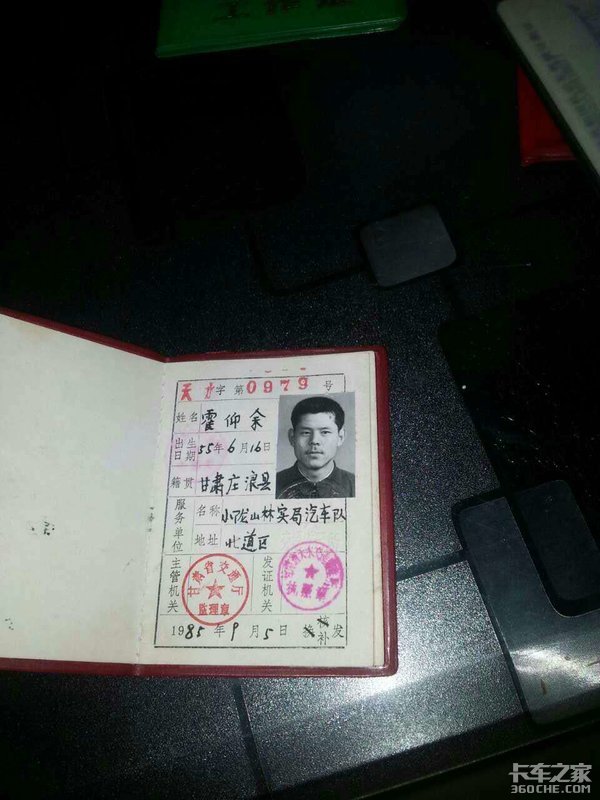 天水字 第0979号
姓名 霍仰余
出生日期 55年6月16日
籍贯 甘肃庄浪县
服务单位 名称 小陇山林实局汽车队
地址 北道区
主管机关 甘肃省交通厅 监理章
发证机关
1985年9月5日 换补发
卡车之家
360CHE.COM